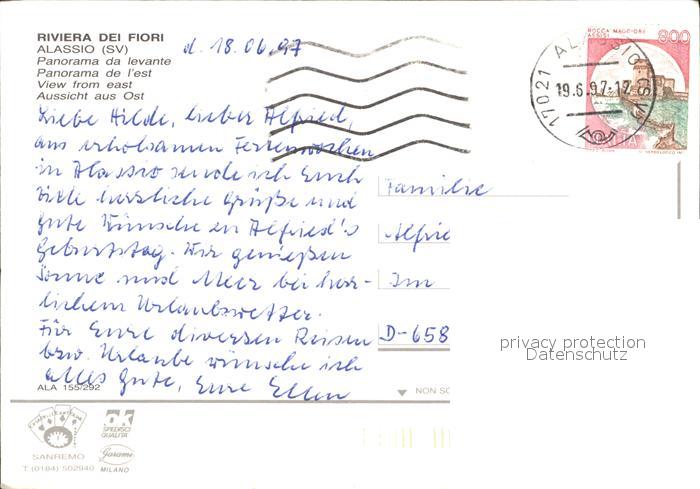 RIVIERA DEI FIORI
ALASSIO (SV)
Panorama da levante
Panorama de l'est
View from east
Aussicht aus Ost
d. 18.06.97
Liebe Hilde, lieber Alfried,
aus erholsamen Ferienwochen
in Alassio sende ich Euch
viele herzliche Grüße und
gute Wünsche zu Alfried's
Geburtstag. Wir genießen
Sonne und Meer bei herr-
lichem Urlaubswetter.
Für Eure diversen Reisen
bzw. Urlaube wünsche ich
alles Gute, Eure Ellen
ALA 155/292
ROCCA MAGGIORE
ASSISI
800
17021 ALASSIO (SV)
19.6.97-17
ITALIA
Familie
Alfrie
Im
D-658
privacy protection
Datenschutz
NON SC
SANREMO
T. (0184) 502940
OK
SPEDISCI
QUALITA'
Garami
MILANO